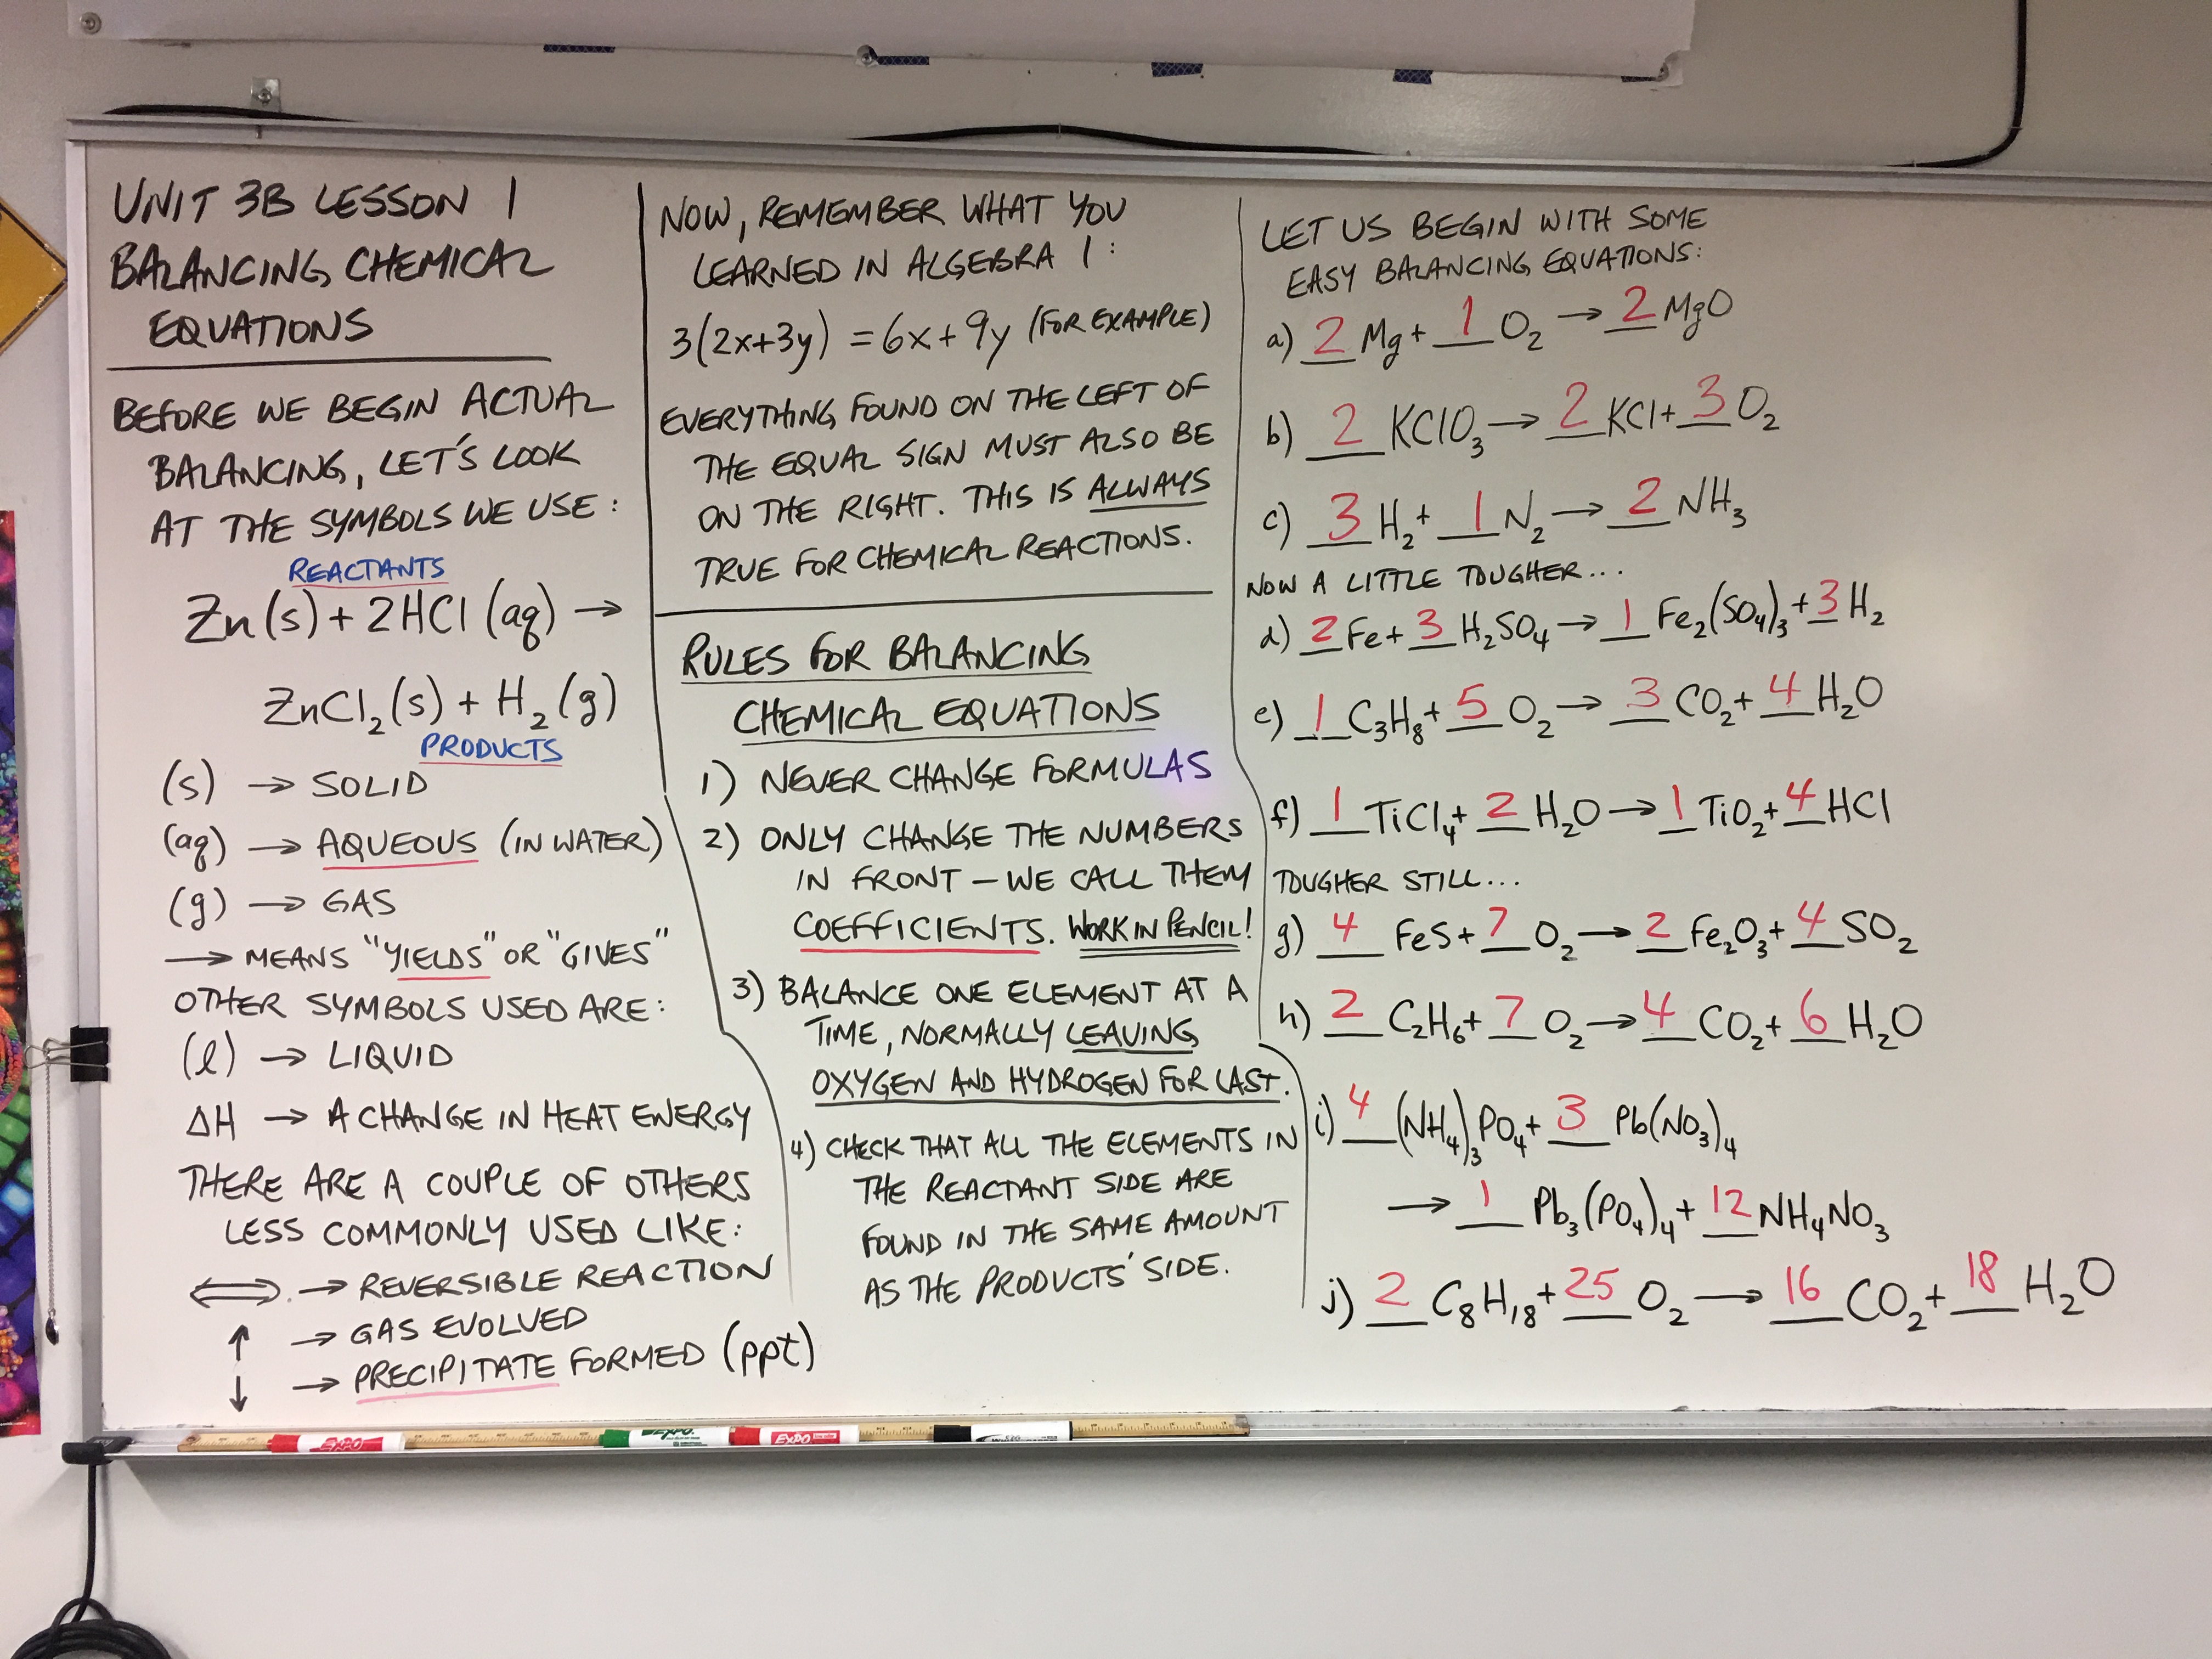 UNIT 3B LESSON 1
BALANCING CHEMICAL
EQUATIONS
BEFORE WE BEGIN ACTUAL
BALANCING, LET'S LOOK
AT THE SYMBOLS WE USE:
REACTANTS
Zn(s) + 2HCl (aq) →
ZnCl₂(s) + H₂(g)
PRODUCTS
(s) → SOLID
(aq) → AQUEOUS (IN WATER)
(g) → GAS
→ MEANS "YIELDS" OR "GIVES"
OTHER SYMBOLS USED ARE:
(l) → LIQUID
ΔH → A CHANGE IN HEAT ENERGY
THERE ARE A COUPLE OF OTHERS
LESS COMMONLY USED LIKE:
⟺ → REVERSIBLE REACTION
↑ → GAS EVOLVED
↓ → PRECIPITATE FORMED (ppt)
NOW, REMEMBER WHAT YOU
LEARNED IN ALGEBRA 1:
3(2x+3y) = 6x + 9y (FOR EXAMPLE)
EVERYTHING FOUND ON THE LEFT OF
THE EQUAL SIGN MUST ALSO BE
ON THE RIGHT. THIS IS ALWAYS
TRUE FOR CHEMICAL REACTIONS.
RULES FOR BALANCING
CHEMICAL EQUATIONS
1) NEVER CHANGE FORMULAS
2) ONLY CHANGE THE NUMBERS
IN FRONT – WE CALL THEM
COEFFICIENTS. WORK IN PENCIL!
3) BALANCE ONE ELEMENT AT A
TIME, NORMALLY LEAVING
OXYGEN AND HYDROGEN FOR LAST.
4) CHECK THAT ALL THE ELEMENTS IN
THE REACTANT SIDE ARE
FOUND IN THE SAME AMOUNT
AS THE PRODUCTS' SIDE.
LET US BEGIN WITH SOME
EASY BALANCING EQUATIONS:
a) 2 Mg + 1 O₂ → 2 MgO
b) 2 KClO₃ → 2 KCl + 3 O₂
c) 3 H₂ + 1 N₂ → 2 NH₃
NOW A LITTLE TOUGHER...
d) 2 Fe + 3 H₂SO₄ → 1 Fe₂(SO₄)₃ + 3 H₂
e) 1 C₃H₈ + 5 O₂ → 3 CO₂ + 4 H₂O
f) 1 TiCl₄ + 2 H₂O → 1 TiO₂ + 4 HCl
TOUGHER STILL...
g) 4 FeS + 7 O₂ → 2 Fe₂O₃ + 4 SO₂
h) 2 C₂H₆ + 7 O₂ → 4 CO₂ + 6 H₂O
i) 4 (NH₄)₃PO₄ + 3 Pb(NO₃)₄
→ 1 Pb₃(PO₄)₄ + 12 NH₄NO₃
j) 2 C₈H₁₈ + 25 O₂ → 16 CO₂ + 18 H₂O
EXPO
EXPO
EXPO